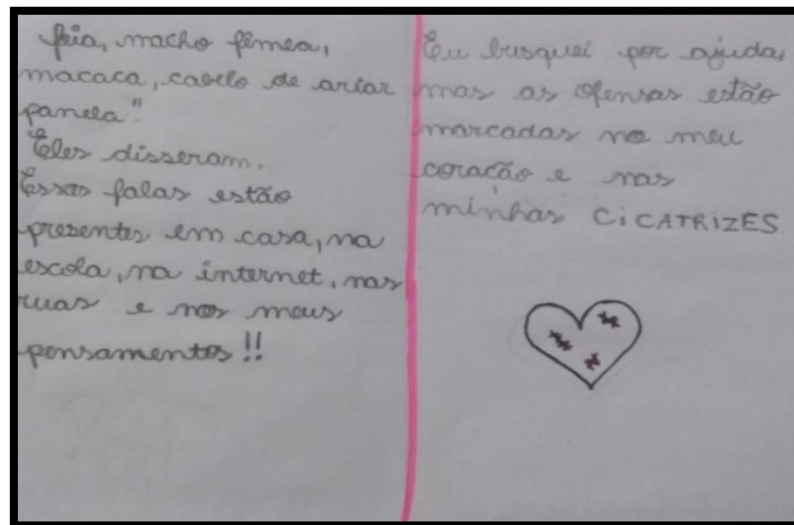 feia, macho fêmea,
macaca, cabelo de ariar
panela"
Eles disseram.
Essas falas estão
presentes em casa, na
escola, na internet, nas
ruas e nos meus
pensamentos!!
Eu busquei por ajuda,
mas as ofensas estão
marcadas no meu
coração e nas
minhas CiCATRIZES